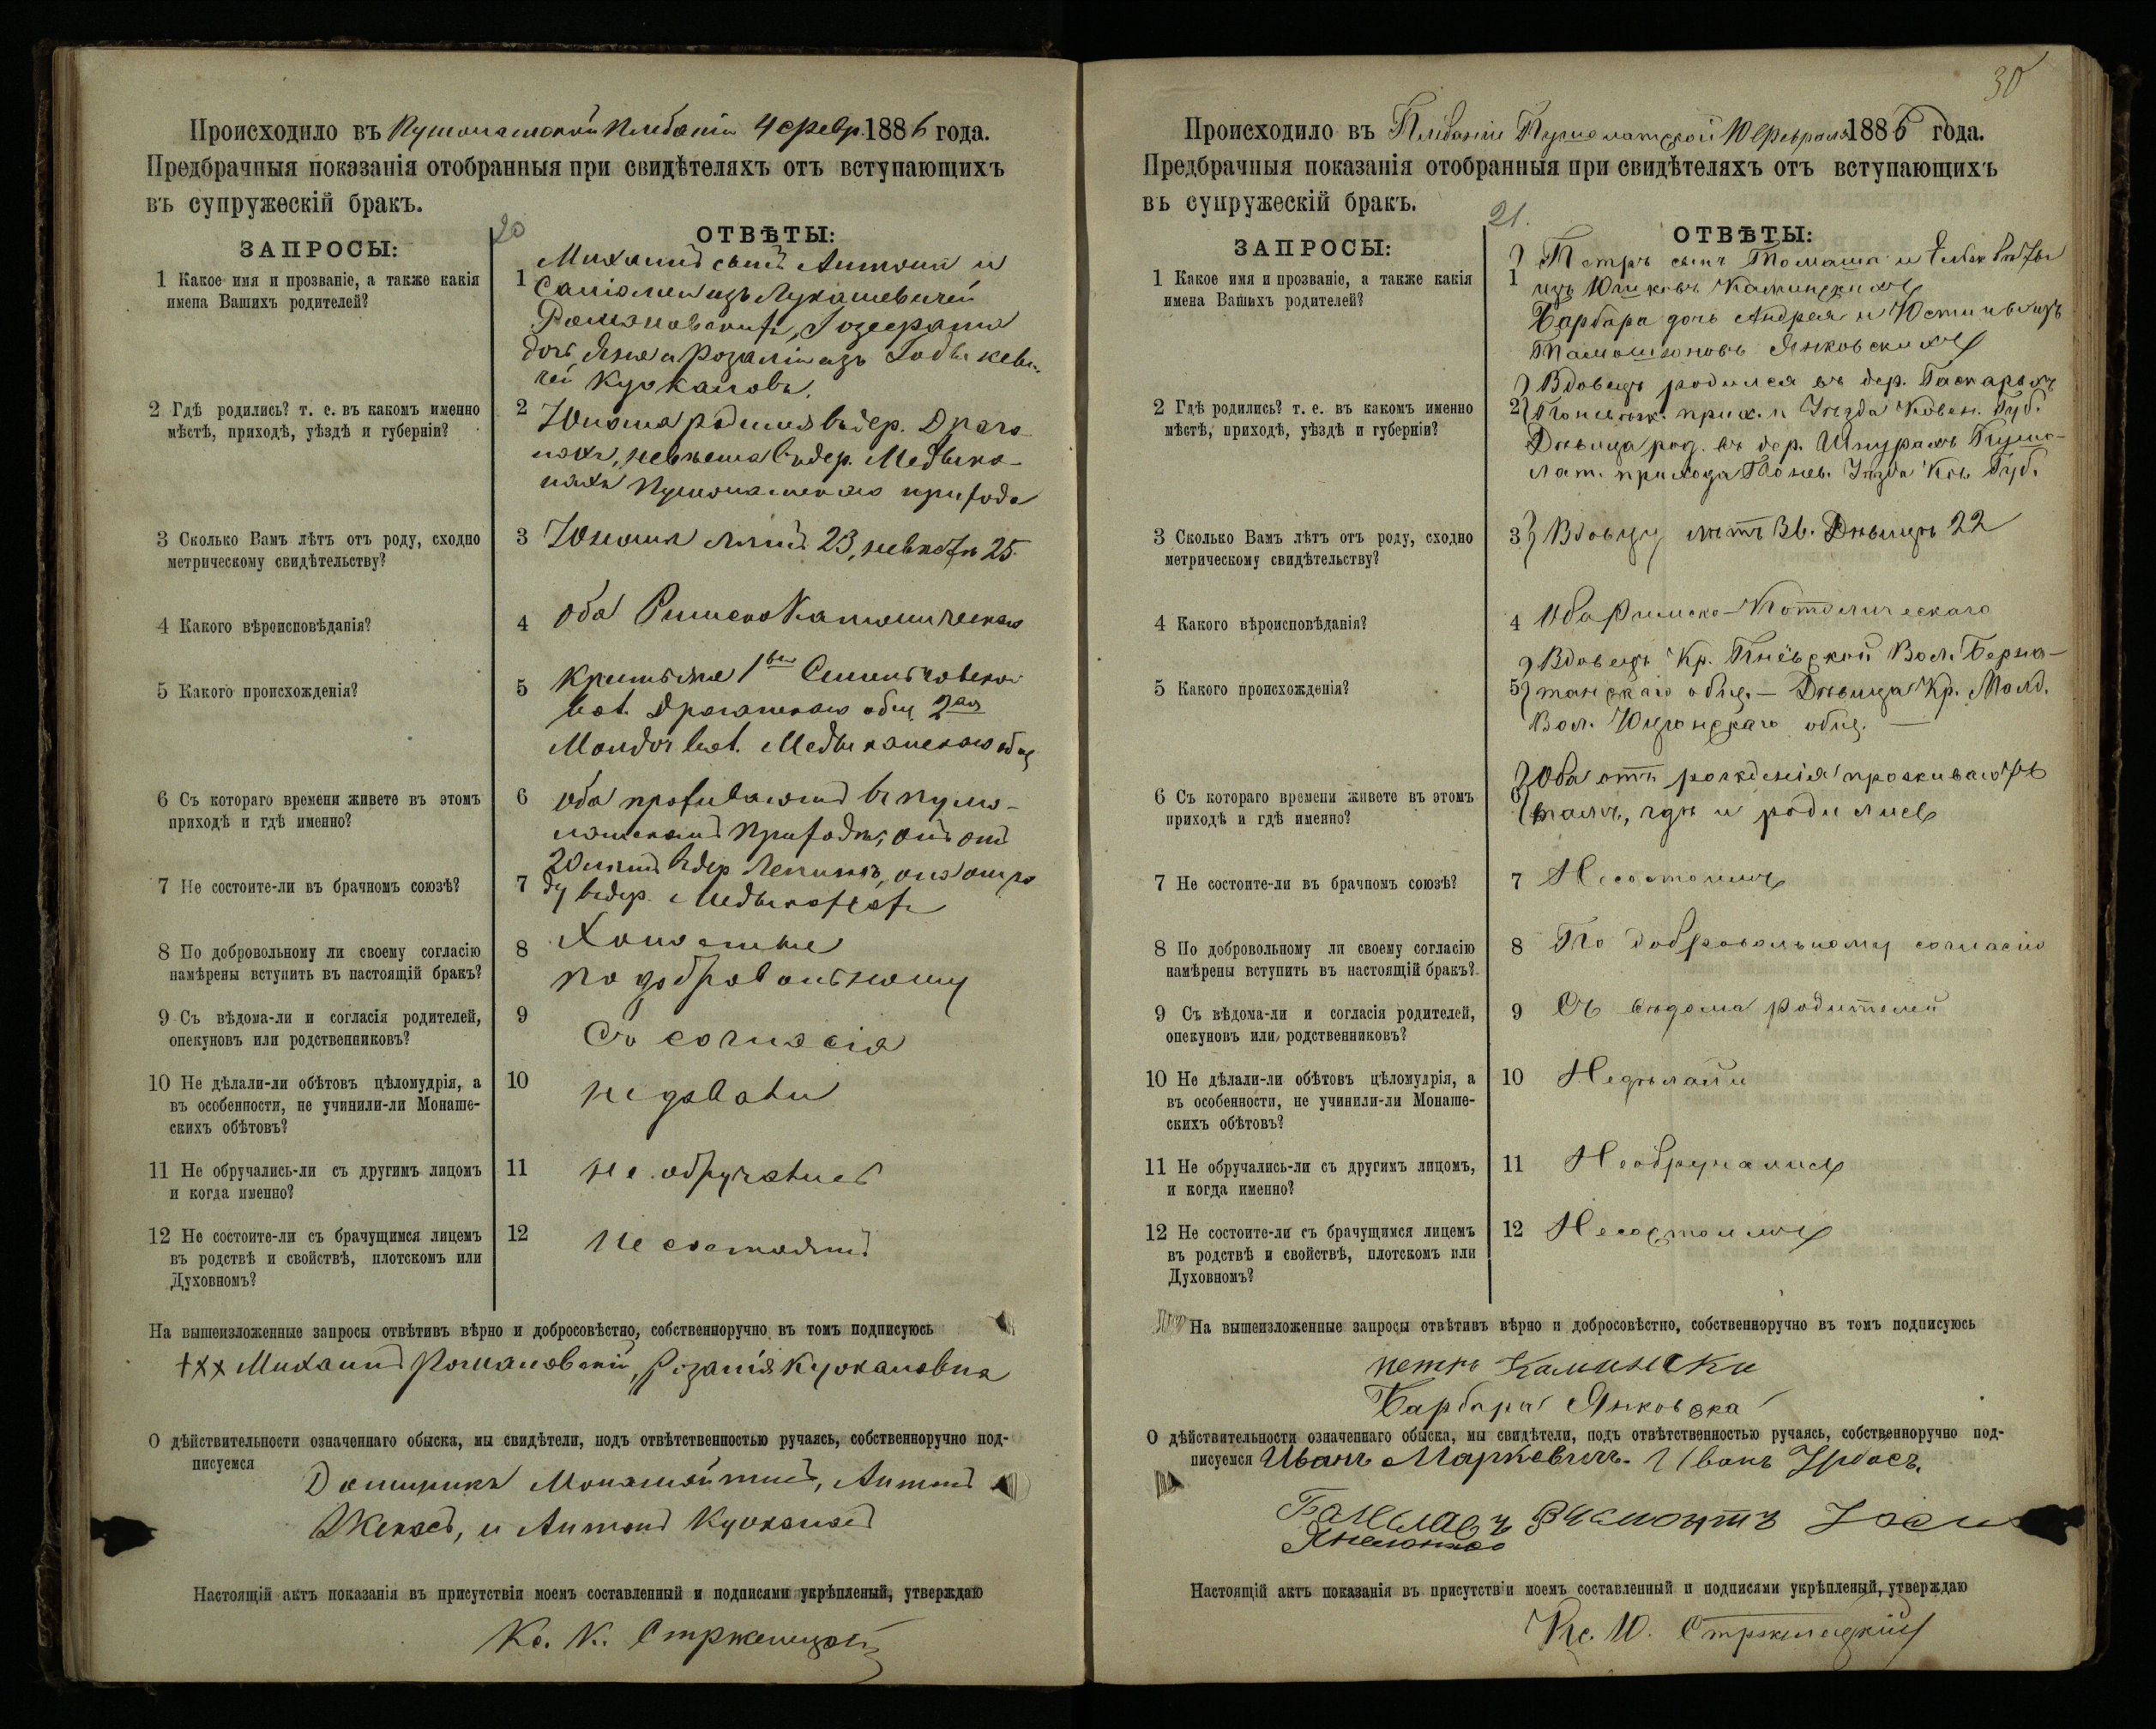 Происходило въ Пушолатской Плебаніи 4 февр. 1886 года.
Предбрачныя показанія отобранныя при свидѣтеляхъ отъ вступающихъ
въ супружескій бракъ.
20
ЗАПРОСЫ:
ОТВѢТЫ:
1 Какое имя и прозваніе, а также какія
имена Вашихъ родителей?
1 Михаилъ сынъ Антонія и
Саломеи изъ Лукашевичей
Романовскихъ, Іозефата
дочь Яна и Розаліи изъ
чей Куокановъ.
2 Гдѣ родились? т. е. въ какомъ именно
мѣстѣ, приходѣ, уѣздѣ и губерніи?
2 Юноша родился въ дер.
невѣста въ дер.
Пушолатскаго прихода
3 Сколько Вамъ лѣтъ отъ роду, сходно
метрическому свидѣтельству?
3 Юноша лѣтъ 23, невѣста 25.
4 Какого вѣроисповѣданія?
4 оба Римско Католическаго
5 Какого происхожденія?
5 Крестьяне 1вый
вол. общ. 2ая
вол. общ
6 Съ котораго времени живете въ этомъ
приходѣ и гдѣ именно?
6 Оба проживаютъ въ Пушо-
латскомъ приходѣ, онъ отъ
2 лѣтъ въ дер. она отъ ро
7 Не состоите-ли въ брачномъ союзѣ?
7 ду въ дер.
8 По добровольному ли своему согласію
намѣрены вступить въ настоящій бракъ?
8 Холостые
по добровольному
9 Съ вѣдома-ли и согласія родителей,
опекуновъ или родственниковъ?
9 Съ согласія
10 Не дѣлали-ли обѣтовъ цѣломудрія, а
въ особенности, не учинили-ли Монаше-
скихъ обѣтовъ?
10 не давали
11 Не обручались-ли съ другимъ лицомъ
и когда именно?
11 не обручались
12 Не состоите-ли съ брачущимся лицемъ
въ родствѣ и свойствѣ, плотскомъ или
Духовномъ?
12 Не состоятъ
На вышеизложенные запросы отвѣтивъ вѣрно и добросовѣстно, собственноручно въ томъ подписуюсь
+xx Михаилъ Романовскій, Розалія Куокановна
О дѣйствительности означеннаго обыска, мы свидѣтели, подъ отвѣтственностью ручаясь, собственноручно под-
писуемся
Доминикъ Антонъ
и Антонъ Куоканасъ
Настоящій актъ показанія въ присутствіи моемъ составленный и подписями укрѣпленый, утверждаю
Кс. К. Стржелецкій
30
Происходило въ Плебаніи Пушолатской 10 Февраля 1886 года.
Предбрачныя показанія отобранныя при свидѣтеляхъ отъ вступающихъ
въ супружескій бракъ.
21.
ЗАПРОСЫ:
ОТВѢТЫ:
1 Какое имя и прозваніе, а также какія
имена Вашихъ родителей?
1 Петръ сынъ Томаша и Елизаветы
изъ Юшковъ Каминскихъ
Барбара дочь Андрея и Юстины изъ
Тамошюновъ Янковскихъ
2 Гдѣ родились? т. е. въ какомъ именно
мѣстѣ, приходѣ, уѣздѣ и губерніи?
2 Вдовецъ родился въ дер. Гаскарахъ
Поневѣж. прих. и Уѣзда Ковен. Губ.
Дѣвица род. въ дер. Шпурахъ Пушо-
лат. прихода Понев. Уѣзда Ков. Губ.
3 Сколько Вамъ лѣтъ отъ роду, сходно
метрическому свидѣтельству?
3 Вдовцу лѣтъ 36. Дѣвицѣ 22
4 Какого вѣроисповѣданія?
4 Оба Римско-Католическаго
5 Какого происхожденія?
5 Вдовецъ Кр. Вол. Берна-
танскаго общ. — Дѣвица Кр.
Вол. общ. —
6 Съ котораго времени живете въ этомъ
приходѣ и гдѣ именно?
6 Оба отъ рожденія проживаютъ
тамъ, гдѣ и родились
7 Не состоите-ли въ брачномъ союзѣ?
7 Несостоимъ
8 По добровольному ли своему согласію
намѣрены вступить въ настоящій бракъ?
8 По добровольному согласію
9 Съ вѣдома-ли и согласія родителей,
опекуновъ или родственниковъ?
9 Съ вѣдома родителей
10 Не дѣлали-ли обѣтовъ цѣломудрія, а
въ особенности, не учинили-ли Монаше-
скихъ обѣтовъ?
10 Недѣлали
11 Не обручались-ли съ другимъ лицомъ,
и когда именно?
11 Необручались
12 Не состоите-ли съ брачущимся лицемъ
въ родствѣ и свойствѣ, плотскомъ или
Духовномъ?
12 Несостоимъ
На вышеизложенные запросы отвѣтивъ вѣрно и добросовѣстно, собственноручно въ томъ подписуюсь
петръ Камински
Барбара Янковска
О дѣйствительности означеннаго обыска, мы свидѣтели, подъ отвѣтственностью ручаясь, собственноручно под-
писуемся Иванъ Маркевичъ. Иванъ Урбасъ.
Настоящій актъ показанія въ присутствіи моемъ составленный и подписями укрѣпленый, утверждаю
Кс. Ю. Стржелецкій